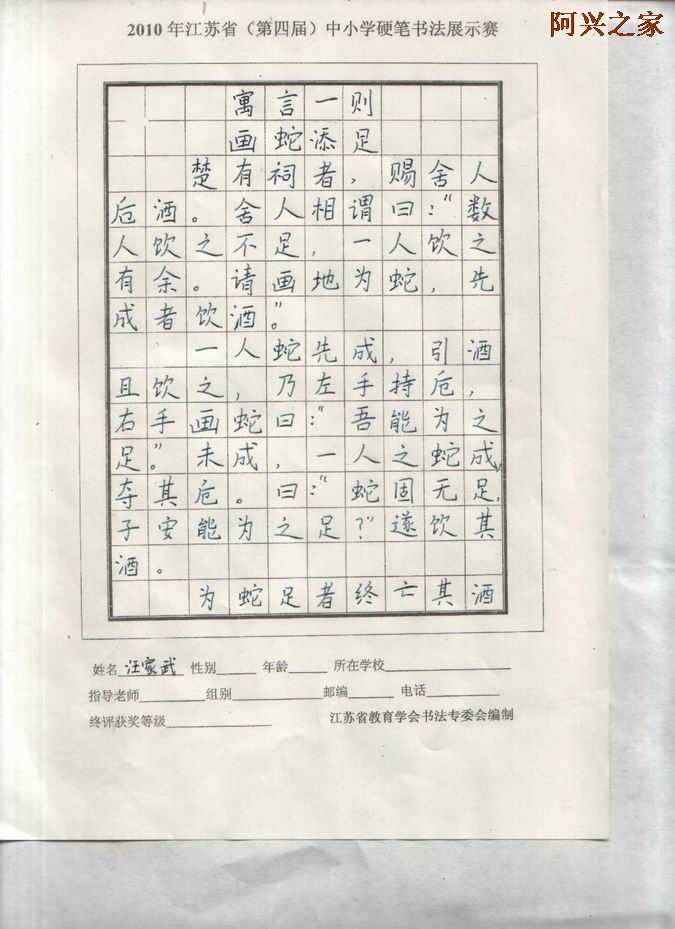 阿兴之家
2010年江苏省（第四届）中小学硬笔书法展示赛
寓言一则
画蛇添足
楚有祠者，赐舍人
卮酒。舍人相谓曰：“数
人饮之不足，一人饮之
有余。请画地为蛇，先
成者饮酒。”
一人蛇先成，引酒
且饮之，乃左手持卮，
右手画蛇曰：“吾能为之
足。”未成，一人之蛇成，
夺其卮。曰：“蛇固无足，
子安能为之足？”遂饮其
酒。
为蛇足者终亡其酒
姓名 汪家武 性别 年龄 所在学校
指导老师 组别 邮编 电话
终评获奖等级 江苏省教育学会书法专委会编制